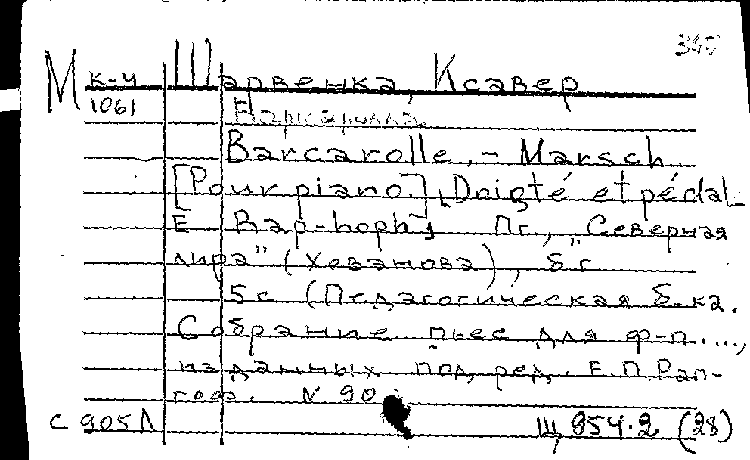 340
М к-4 Шарвенка, Ксавер
1061 Баркаролла
Barcarolle. - Marsch
[Pour piano.] Doigté et pédal
E. Rap-hoph] Пг., „Северная
лира" (Хованова), б.г
5с (Педагогическая б.ка.
Собрание пьес для ф-п....,
изданных под ред. Е.П.Рап-
гоф. N 90
с 905Л Щ 954.2 (28)